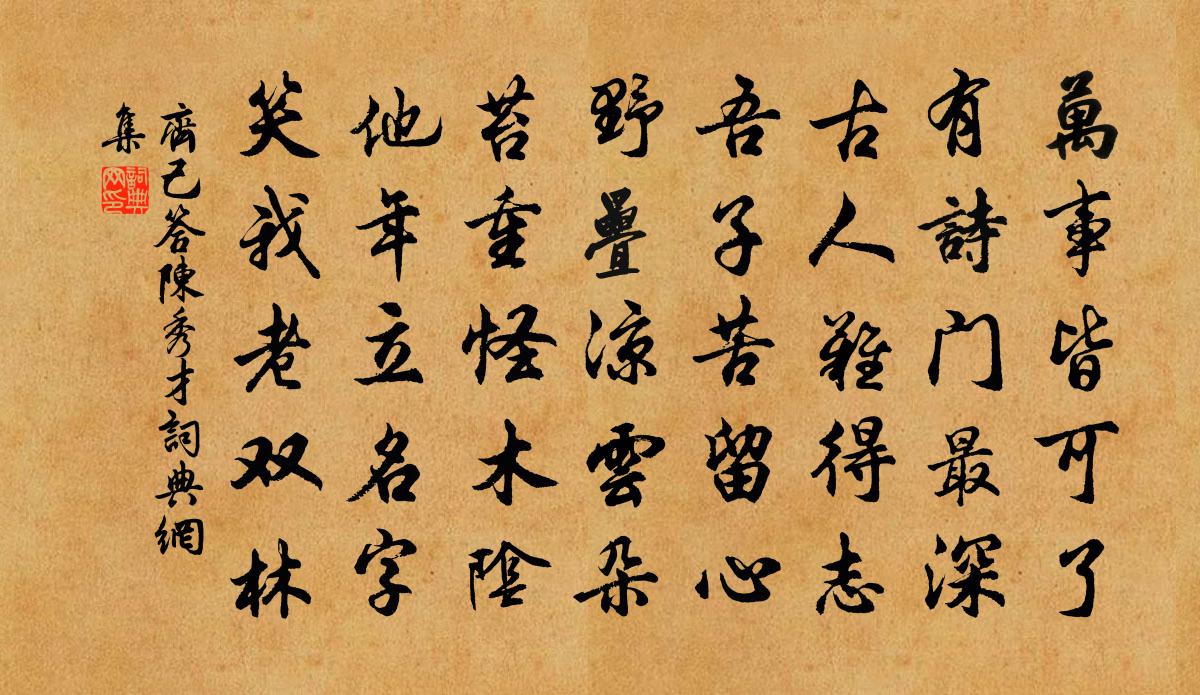 萬事皆可了
有詩门最深
古人難得志
吾子苦留心
野疊凉雲朵
苔重怪木陰
他年立名字
笑我老双林
齊己答陳秀才詞典網
集
詞典
网印